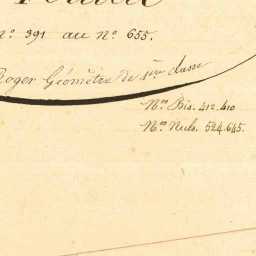 n.º 391 au n.º 655.
Roger Géomètre de 1ère classe
N.ºs Bis. 412. 410
N.ºs Nuls. 524. 645.